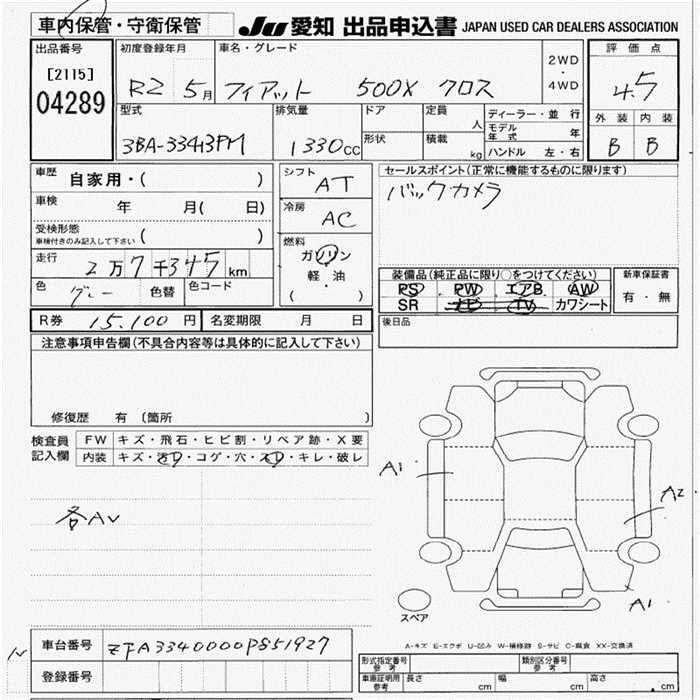 車内保管・守衛保管 JU 愛知 出品申込書 JAPAN USED CAR DEALERS ASSOCIATION
出品番号 初度登録年月 車名・グレード 2WD・4WD 評価点
[2115] R2 5月 フィアット 500X クロス 4.5
04289
型式 排気量 ドア 定員 人 ディーラー・並行 外装 内装
3BA-33413PM 1330cc 形状 積載 kg モデル年式 年 B B
ハンドル 左・右
車歴 自家用・( ) シフト AT セールスポイント(正常に機能するものに限ります)
車検 年 月( 日) 冷房 AC バックカメラ
受検形態 ( )
車検付きのみ記入して下さい
燃料 ガソリン
走行 2万7千345km 軽・油
色 グレー 色替 色コード ( )
装備品(純正品に限り○をつけてください) 新車保証書
PS PW エアB AW 有・無
SR ナビ TV カワシート
R券 15,100円 名変期限 月 日 後日品
注意事項申告欄(不具合内容等は具体的に記入して下さい)
修復歴 有 〔箇所 〕
検査員記入欄 FW キズ・飛石・ヒビ割・リペア跡・X要
内装 キズ・汚レ・コゲ・穴・スレ・キレ・破レ
各AU
A1
A2
A1
スペア
A-キズ E-エクボ U-凹み W-補修跡 S-サビ C-腐食 XX-交換済
車台番号 ZFA3340000P851927
登録番号
型式指定番号 参考 類別区分番号 参考
車庫証明用 参考 長さ cm 幅 cm 高さ cm